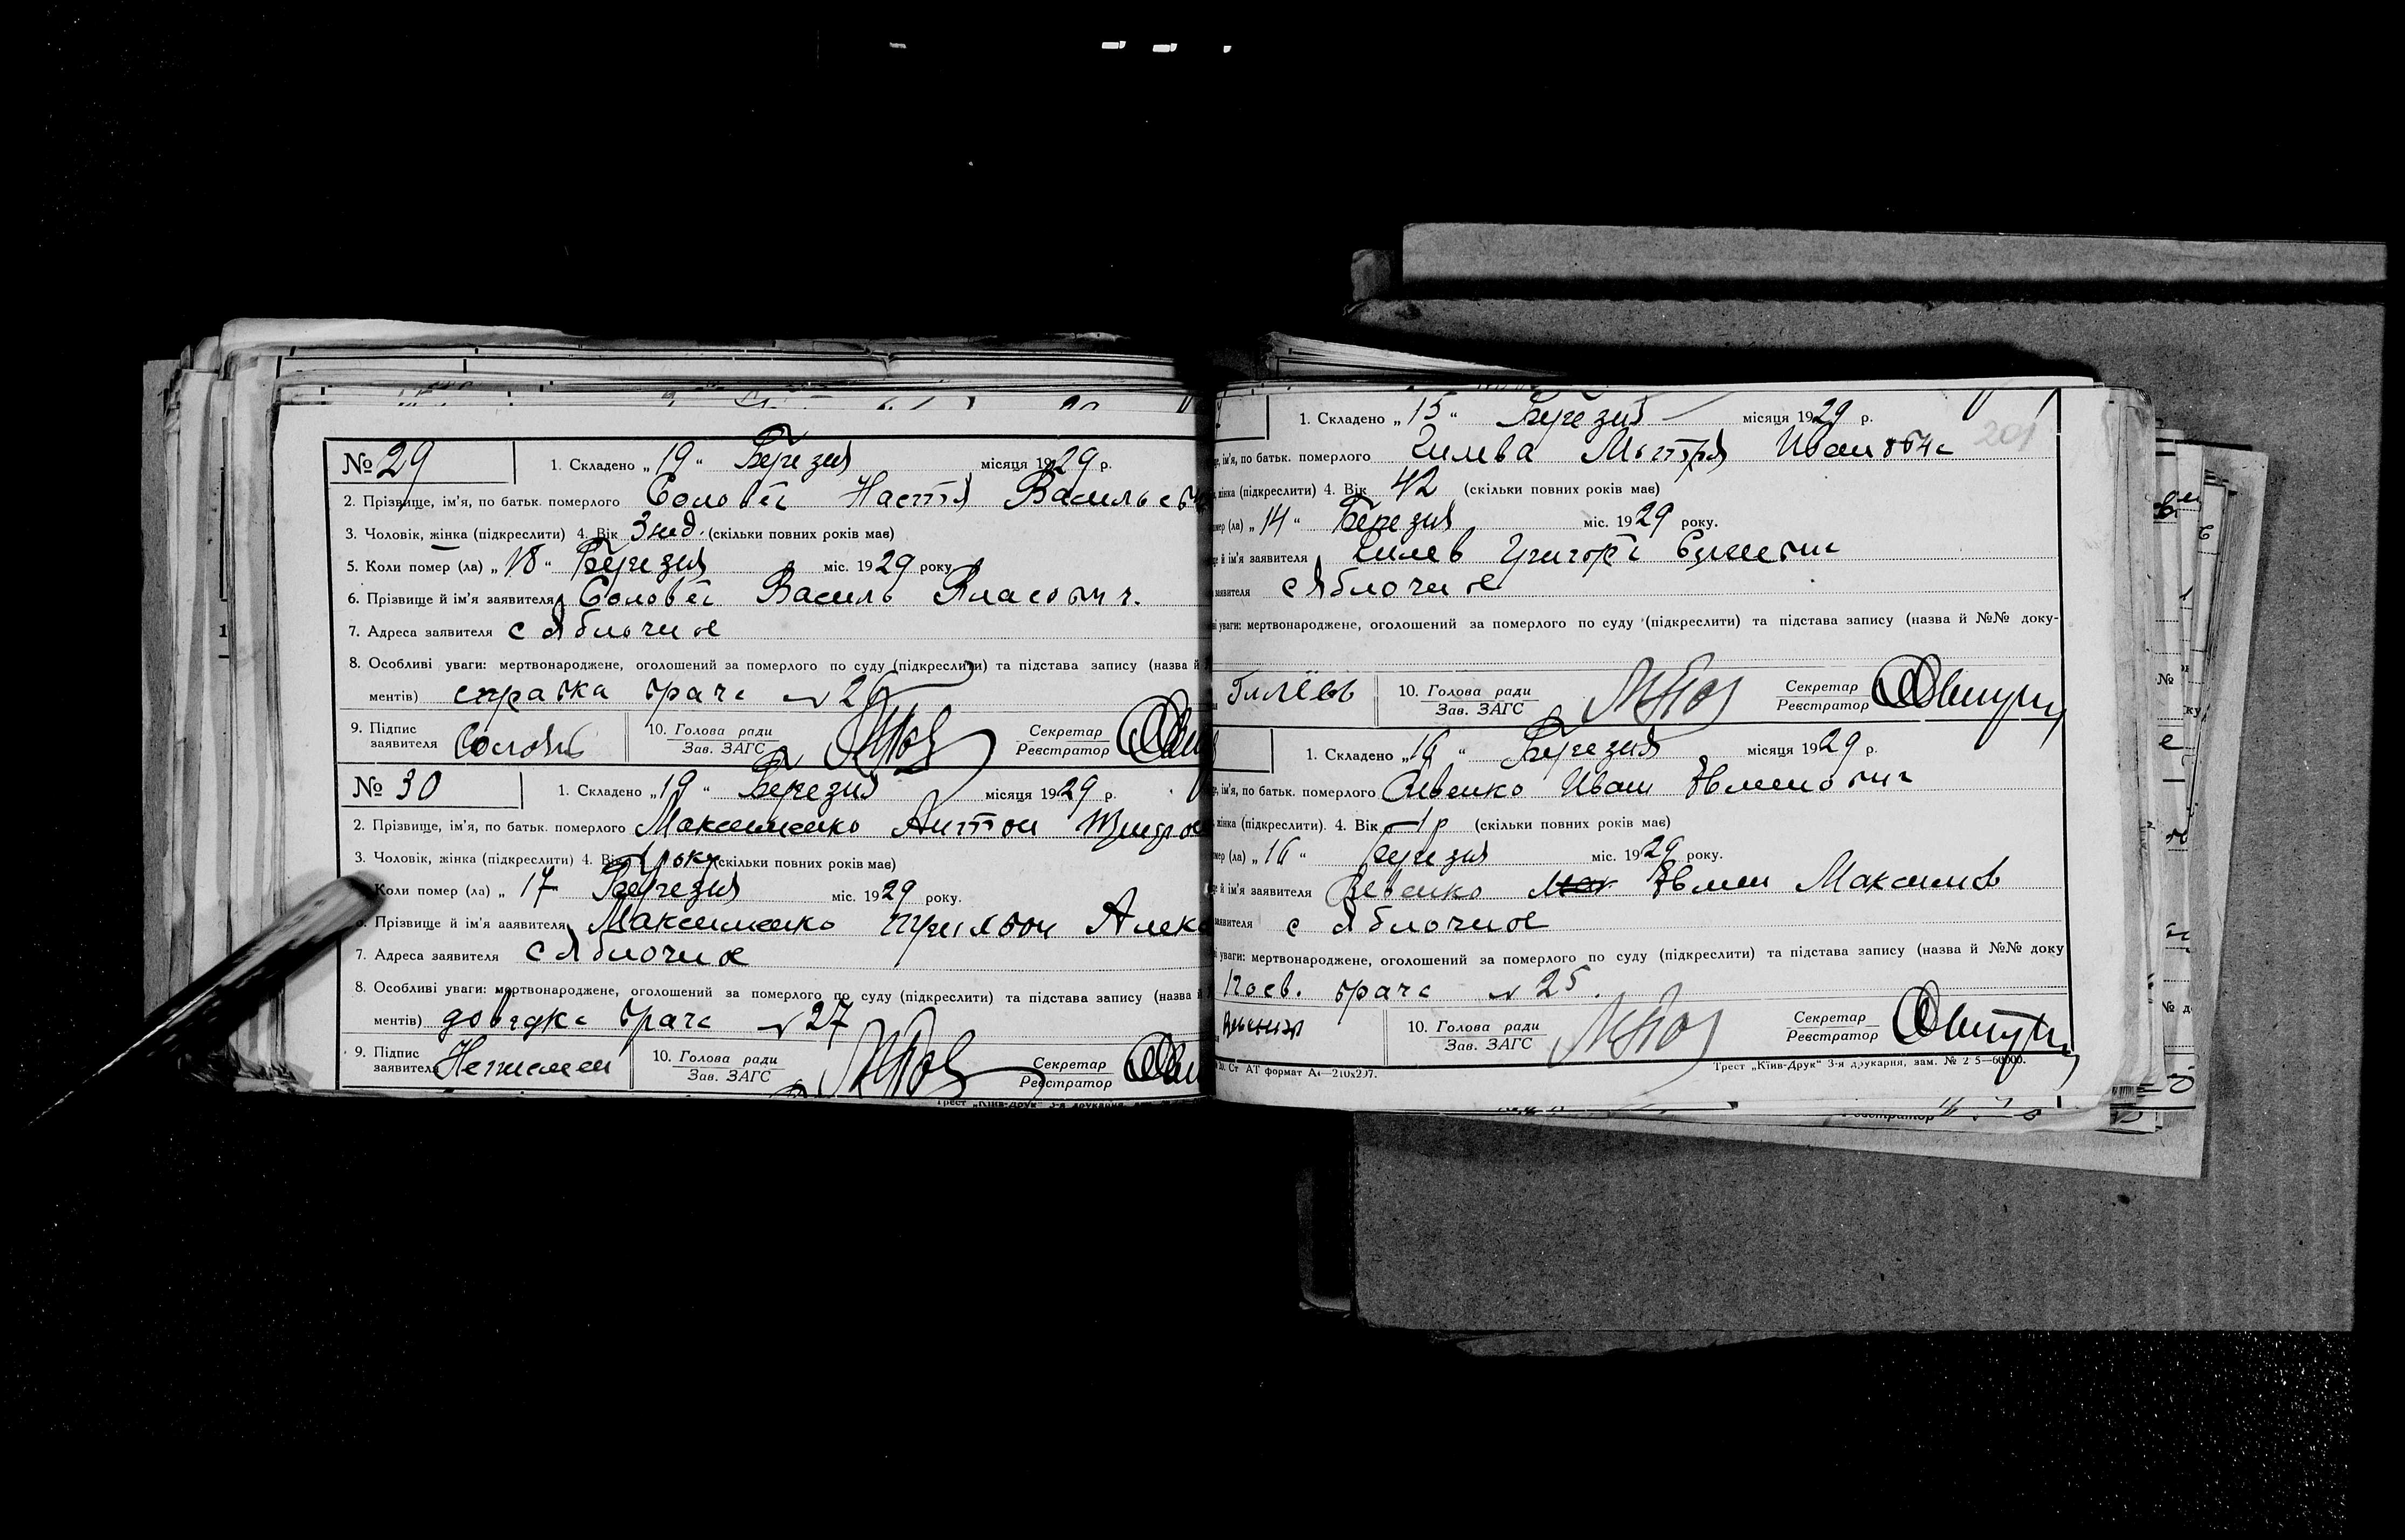 № 29
1. Складено „19“ Березня місяця 1929 р.
2. Прізвище, ім'я, по батьк. померлого Соловей Настя
3. Чоловік, жінка (підкреслити) 4. Вік 3 нед. (скільки повних років має)
5. Коли помер (ла) „18“ Березня міс. 1929 року
6. Прізвище й ім'я заявителя Соловей Василь Власович.
7. Адреса заявителя с Яблочне
8. Особливі уваги: мертвонароджене, оголошений за померлого по суду (підкреслити) та підстава запису (назва й
ментів) справка врача № 26
9. Підпис заявителя Соловей 10. Голова ради Зав. ЗАГС Секретар Реєстратор
№ 30
1. Складено „19“ Березня місяця 1929 р.
2. Прізвище, ім'я, по батьк. померлого Максименко Антон
3. Чоловік, жінка (підкреслити) 4. Вік 1 року (скільки повних років має)
Коли помер (ла) „17 Березня міс. 1929 року.
6. Прізвище й ім'я заявителя Максименко
7. Адреса заявителя с Яблочне
8. Особливі уваги: мертвонароджене, оголошений за померлого по суду (підкреслити) та підстава запису (назва й
ментів) довідка врача № 27
9. Підпис заявителя Неписмен 10. Голова ради Зав. ЗАГС Секретар Реєстратор
201
1. Складено „15“ Березня місяця 1929 р.
ім'я, по батьк. померлого Мотря Ивановна
жінка (підкреслити) 4. Вік 42 (скільки повних років має)
(ла) „14“ Березня міс. 1929 року.
й ім'я заявителя Григорі
заявителя с Яблочне
уваги: мертвонароджене, оголошений за померлого по суду (підкреслити) та підстава запису (назва й №№ доку-
Гилёвъ 10. Голова ради Зав. ЗАГС Секретар Реєстратор
1. Складено „16“ Березня місяця 1929 р.
ім'я, по батьк. померлого Иван
жінка (підкреслити). 4. Вік 1 р (скільки повних років має)
(ла) „16“ Березня міс. 1929 року.
й ім'я заявителя Максимов
заявителя с Яблочне
уваги: мертвонароджене, оголошений за померлого по суду (підкреслити) та підстава запису (назва й №№ доку
Посв. врача № 25.
10. Голова ради Зав. ЗАГС Секретар Реєстратор
Ст АТ формат А4—210х297. Трест „Київ-Друк“ 3-я друкарня, зам.